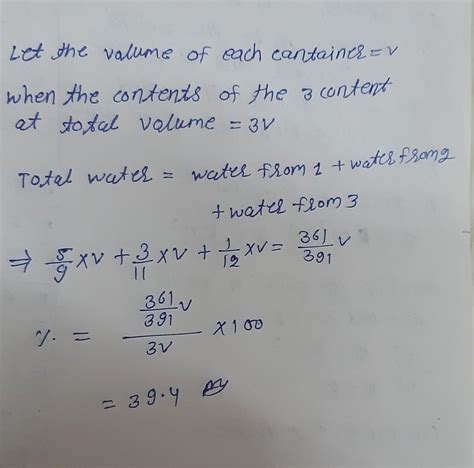 Let the volume of each cantainer = v
when the contents of the 3 content
at total volume = 3V
Total water = water from 1 + water from 2
+ water from 3
⇒ 5/9 xv + 3/11 xv + 1/12 xv = 361/391 v
%. = (361/391 v)/3v x 100
= 39.4